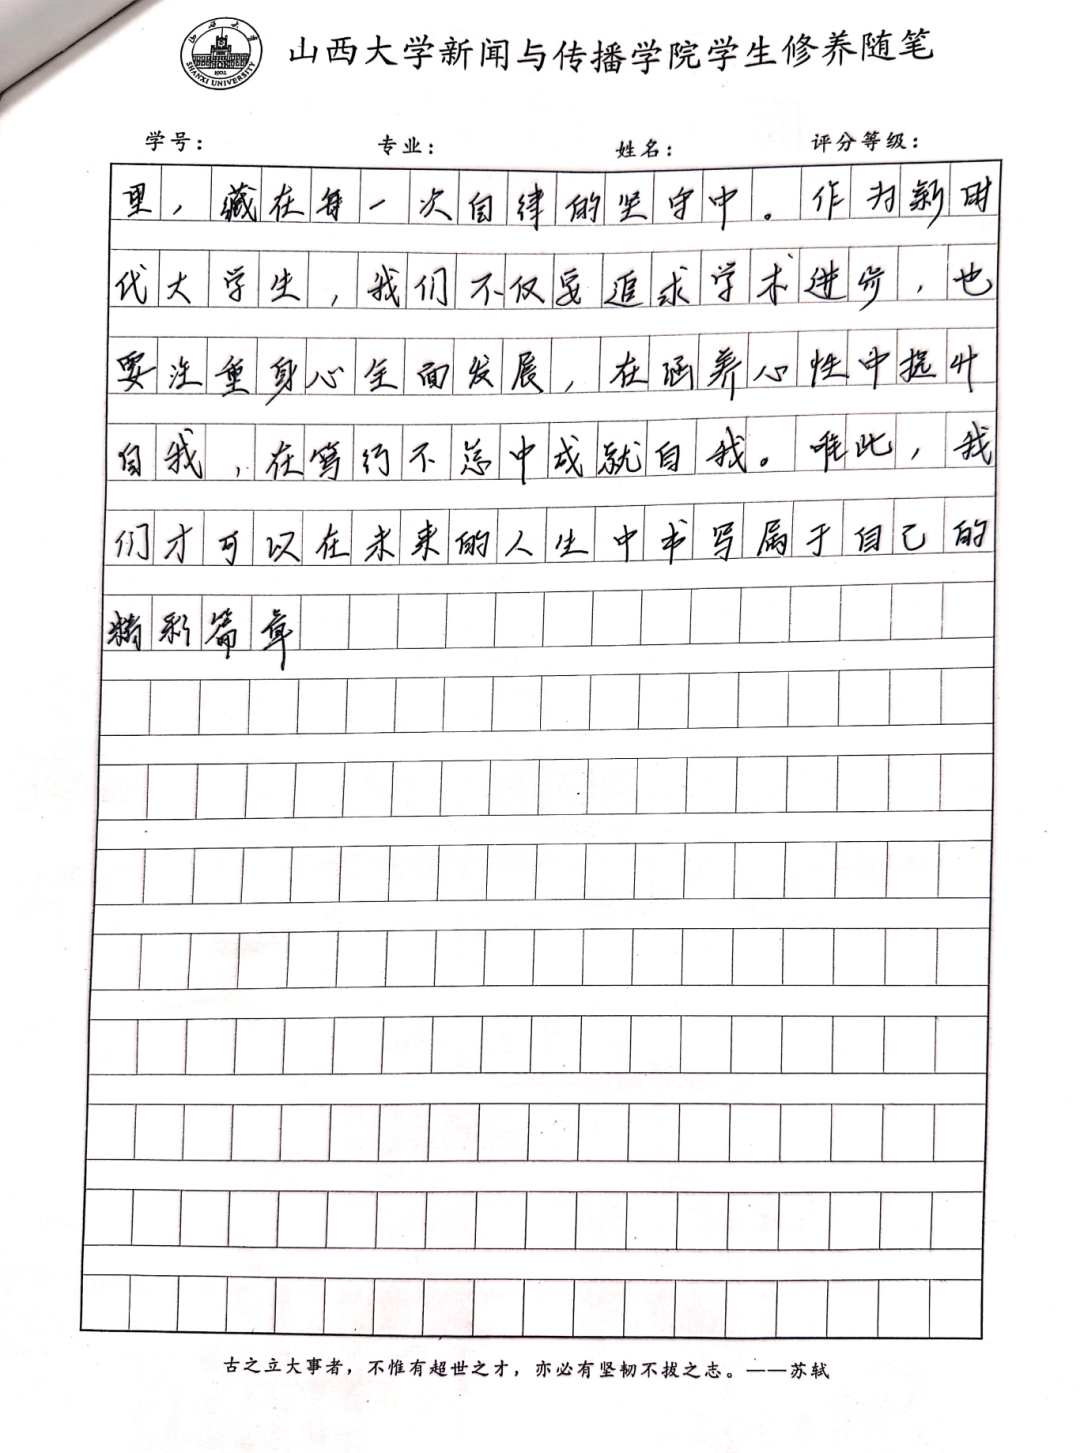 山西大学
SHANXI UNIVERSITY
1902
山西大学新闻与传播学院学生修养随笔
学号： 专业： 姓名： 评分等级：
里，藏在每一次自律的坚守中。作为新时
代大学生，我们不仅要追求学术进步，也
要注重身心全面发展，在涵养心性中提升
自我，在笃行不怠中成就自我。唯此，我
们才可以在未来的人生中书写属于自己的
精彩篇章
古之立大事者，不惟有超世之才，亦必有坚韧不拔之志。——苏轼